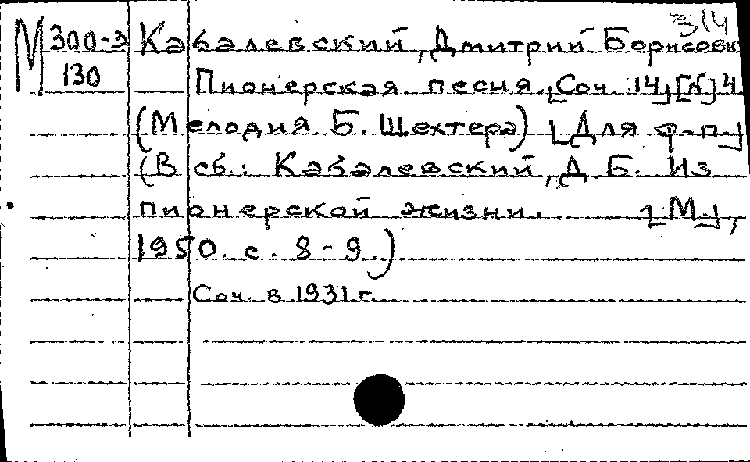 3/4
М 300-3 Кабалевский, Дмитрий Борисович
130 Пионерская песня. [Соч. 14] [№] 4
(Мелодия Б. Шехтера) [Для ф-п.]
(В сб.: Кабалевский, Д. Б. Из
пионерской жизни. [М.],
1950. с. 8-9.)
Соч. в 1931 г.